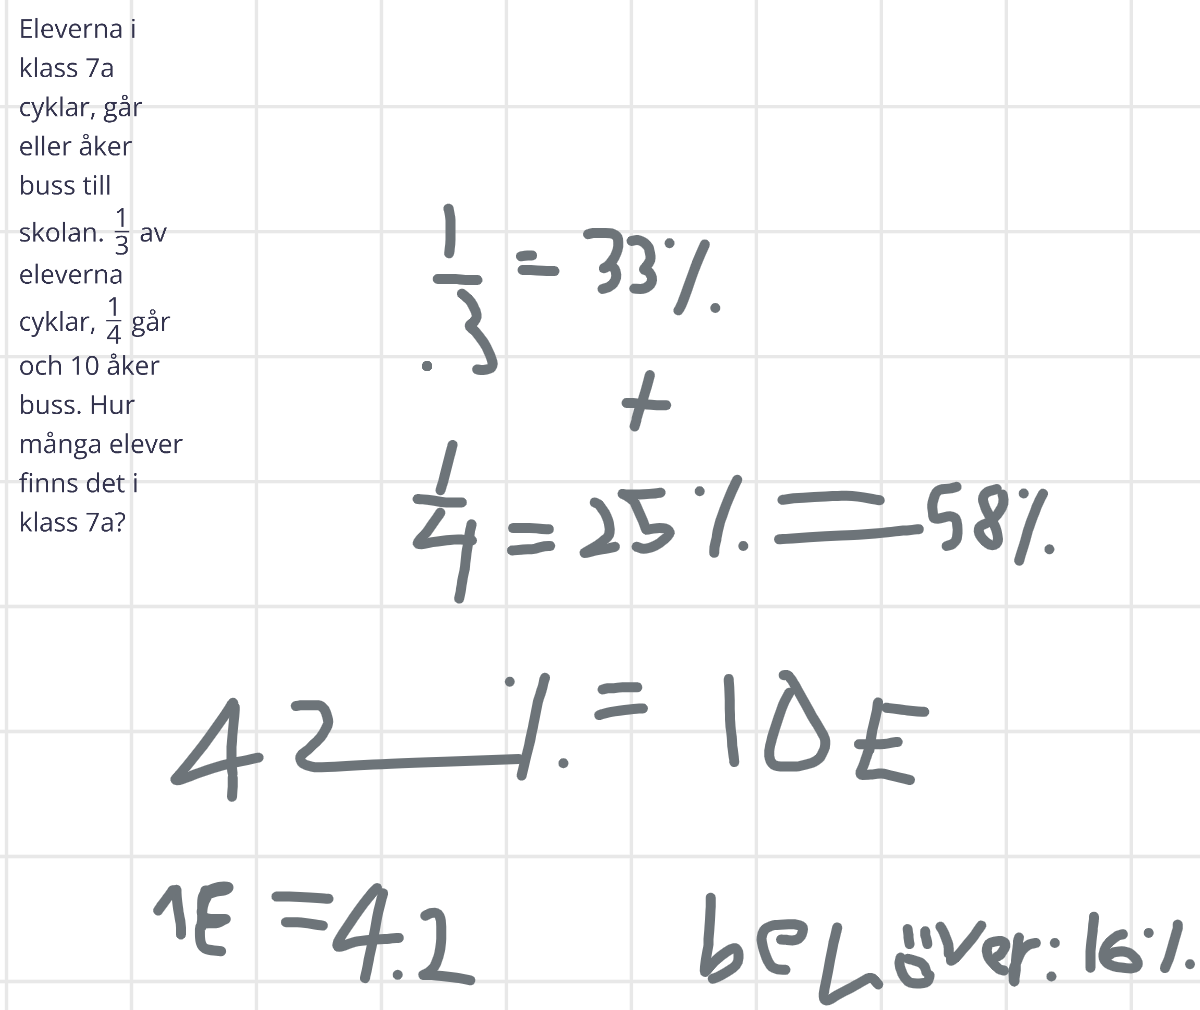 Eleverna i
klass 7a
cyklar, går
eller åker
buss till
skolan. 1/3 av
eleverna
cyklar, 1/4 går
och 10 åker
buss. Hur
många elever
finns det i
klass 7a?
1/3 = 33%
+
1/4 = 25% = 58%
42% = 10E
1E = 4.2
över: 16%